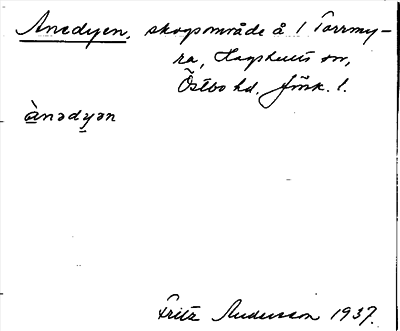 Anedyen, skogsområde å 1 Torrmy-
ra, Hagshults sn,
Östbo hd, Jönk. l.
ànədyən
Fritz Andersson 1937.